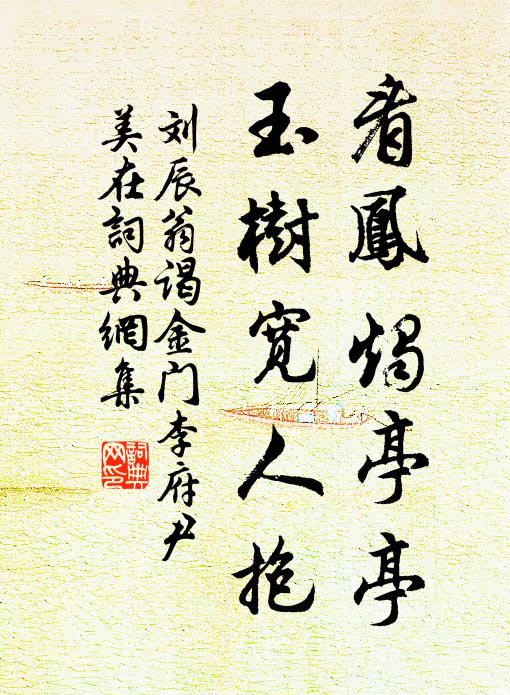 看鳳燭亭亭
玉樹寬人抱
刘辰翁谒金门李府尹
美在詞典網集
詞典网印